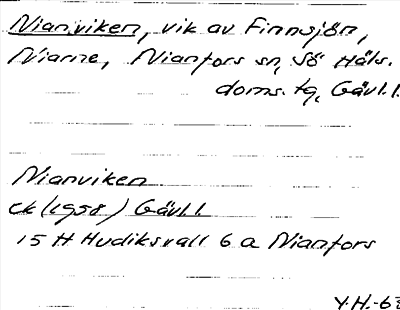 Nianviken, vik av Finnsjön,
Nianne, Nianfors sn, Sö Häls.
doms. tg, Gävl.l.
Nianviken
ek (1958) Gävl.l.
15 H Hudiksvall 6 a Nianfors
Y.H.-63